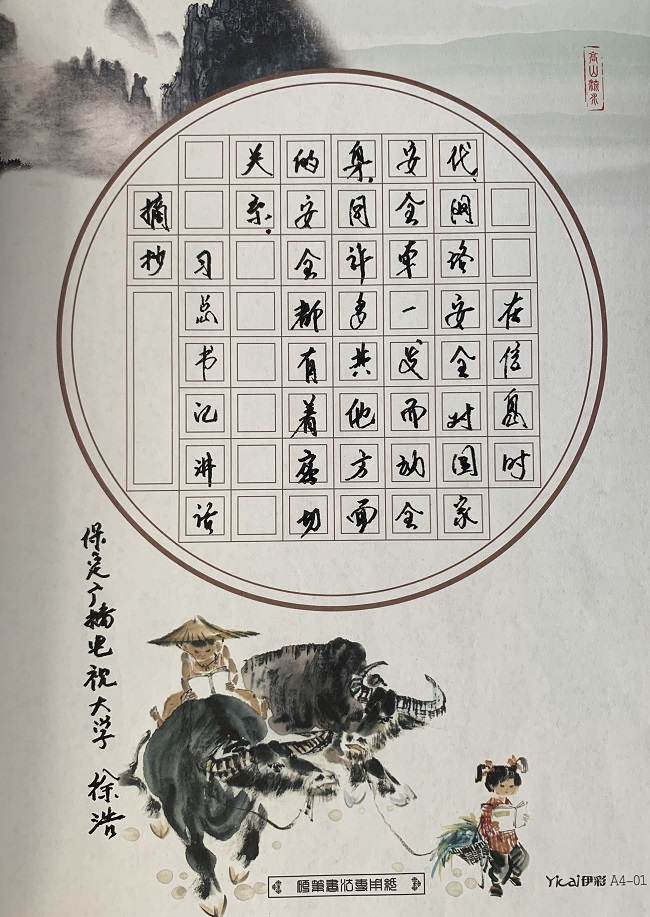 在信息时
代,网络安全对国家
安全牵一发而动全
身,同许多其他方面
的安全都有着密切
关系.
习总书记讲话
摘抄
保定广播电视大学 徐浩
高山流水
硬笔书法专用纸
Yicai伊彩 A4-01